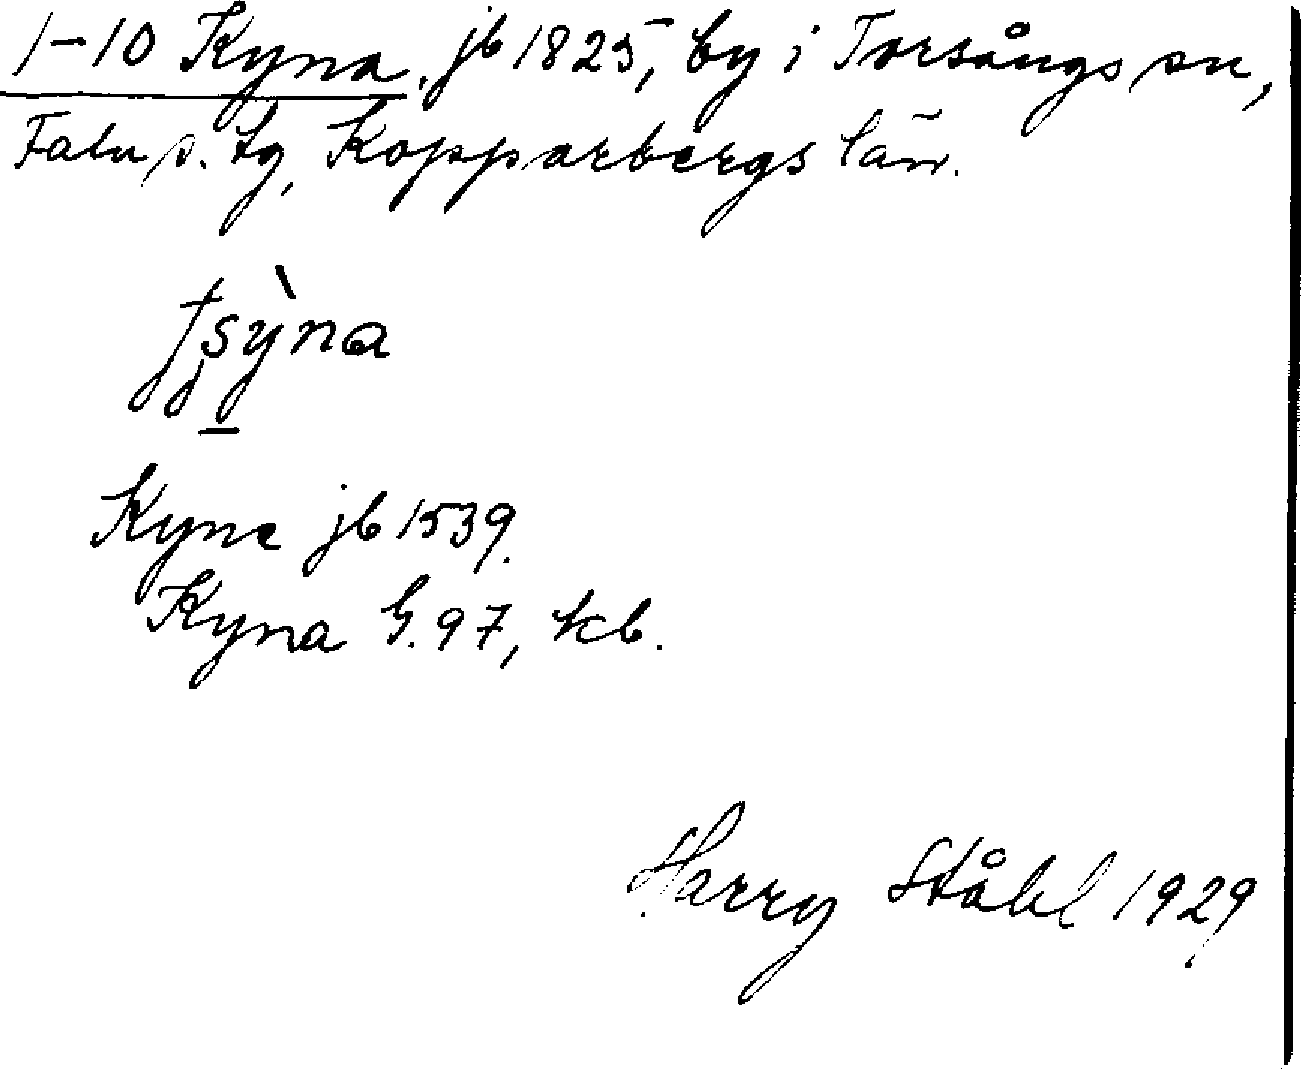 1-10 Kyna, jb 1825, by i Torsångs sn,
Falu s. tg, Kopparbergs län.
tsỳna
Kyne jb 1539.
Kyna G. 97, kb.
Harry Ståhl 1929